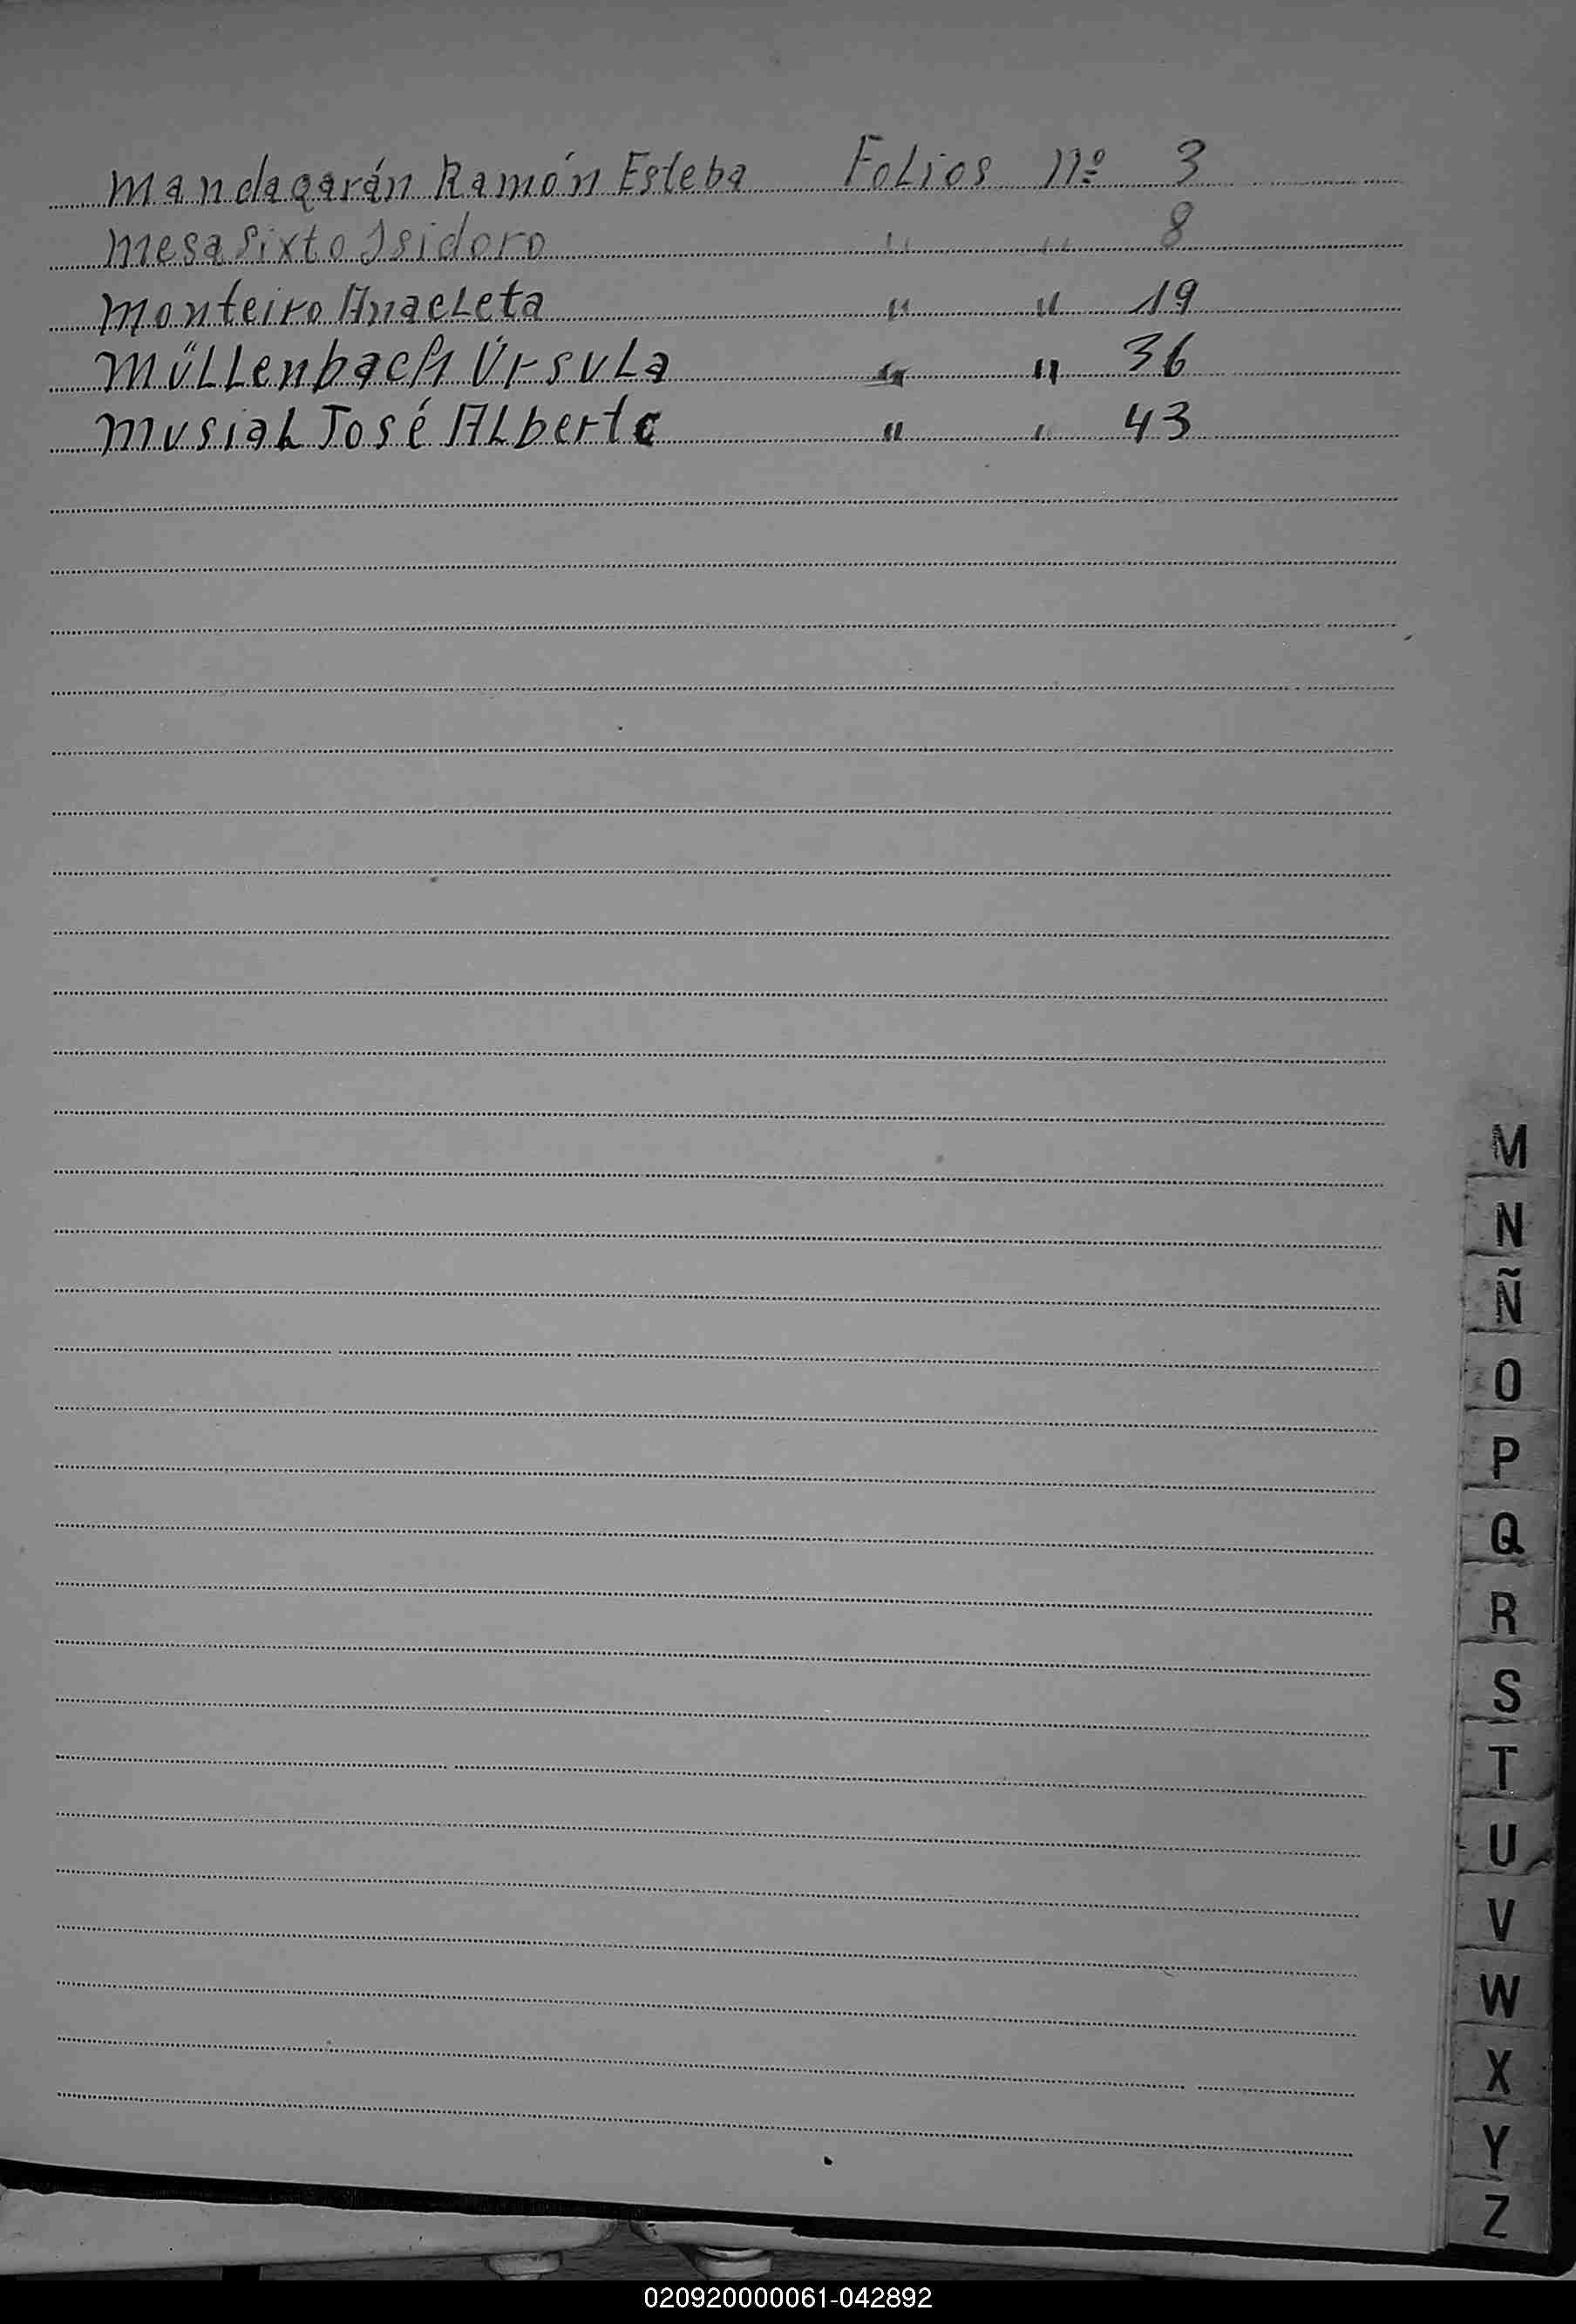 Mandagarán Ramón Esteba Folios nº 3
Mesa Sixto Isidoro " " 8
Monteiro Anacleta " " 19
Müllenbach Úrsula " " 36
Musial José Alberto " " 43
M
N
Ñ
O
P
Q
R
S
T
U
V
W
X
Y
Z
020920000061-042892